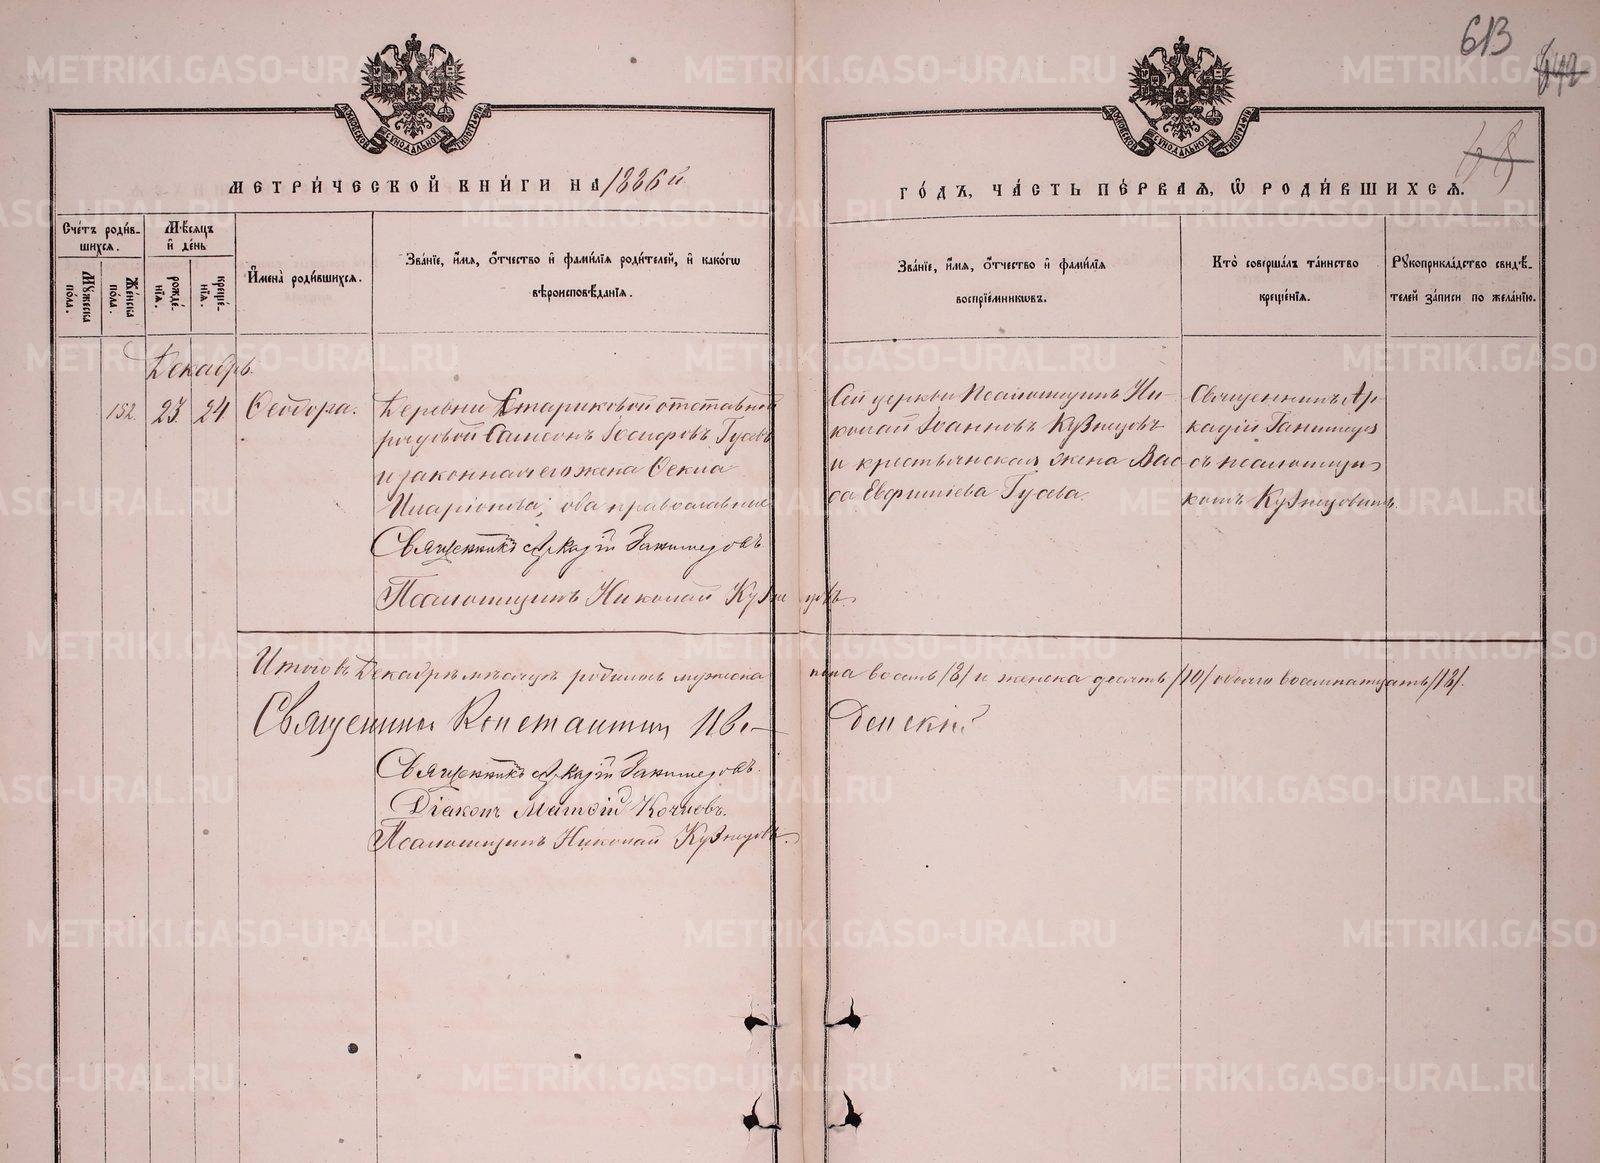 613
642
МЕТРИ́ЧЕСКОЙ КНИ́ГИ НА 1886й
ГО́ДЪ, ЧА́СТЬ ПЕ́РВАЯ, Ѡ РОДИ́ВШИХСЯ.
Сче́тъ роди́в-
шихся.
Му́жеска по́ла.
Же́нска по́ла.
Мѣ́сяцъ и де́нь
рожде́-
нїя.
креще́-
нїя.
Имена̀ роди́вшихся.
Зва́нїе, и́мя, о́тчество и фами́лїя роди́телей, и како́гѡ
вѣроисповѣ́данїя.
Зва́нїе, и́мя, о́тчество и фами́лїя
воспрїе́мникѡвъ.
Кто̀ соверша́лъ та́инство
креще́нїя.
Рукоприкла́дство свидѣ́-
телей за́писи по жела́нїю.
Декабрь.
152. 23. 24 Ѳеодора.
Деревни Стариковой отставной
рядовой Самсонъ Іосифовъ Гусевъ
и законная его жена Ѳекла
Иларіонова; оба православные
Священникъ Аркадій Ганимедовъ
Псаломщикъ Николай Кузнецовъ.
Сей церкви Псаломщикъ Ни-
колай Іоанновъ Кузнецовъ
и крестьянская жена Вас-
са Евфиміева Гусева.
Священникъ Ар-
кадій Ганимедо
съ псаломщи
комъ Кузнецовымъ.
Итого въ Декабрѣ мѣсяцѣ родилось мужеска пола восемь /8/ и женска десять /10/ обоего восемнатцать /18/.
Священникъ Константинъ Иво-
Священникъ Аркадій Ганимедовъ.
Діаконъ Матѳій Кочневъ.
Псаломщикъ Николай Кузнецовъ.
METRIKI.GASO-URAL.RU